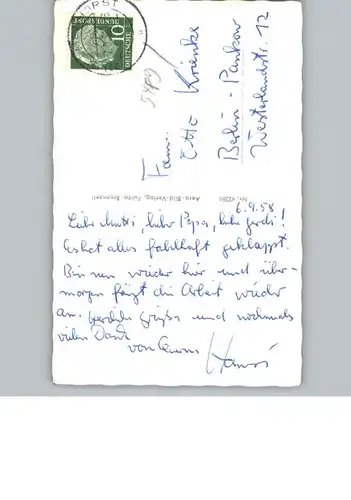 DEUTSCHE
BUNDESPOST
10
5449
Fam.
Otto Krienke
Berlin - Pankow
Westerlandstr. 12
Aero-Bild-Verlag, Fulda
Nr.
6.9.58
Liebe Mutti, lieber Papa, liebe Gerdi!
Es hat alles fabelhaft geklappt.
Bin nun wieder hier und über-
morgen fängt die Arbeit wieder
an. Herzliche Grüße und nochmals
vielen Dank
von Eurem Hansi